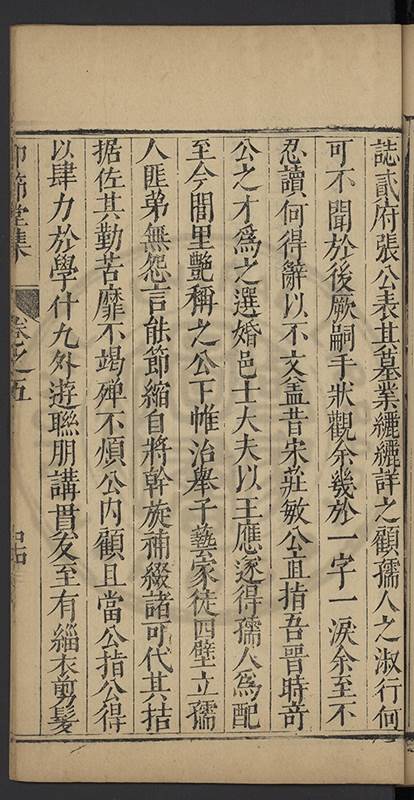 誌貳府張公表其墓業纚纚詳之顧孺人之淑行何
可不聞於後厥嗣手狀觀余幾於一字一淚余至不
忍讀何得辭以不文盖昔宋莊敏公直指吾晋時竒
公之才爲之選婚邑士大夫以王應遂得孺人爲配
至今閭里艷稱之公下帷治舉子藝家徒四壁立孺
人匪弟無怨言能節縮自將幹旋補綴諸可代其拮
据佐其勤苦靡不竭殫不煩公内顧且當公指公得
以肆力於學什九外遊聯朋講貫矣至有緇衣剪髮
仰節堂集
卷之五